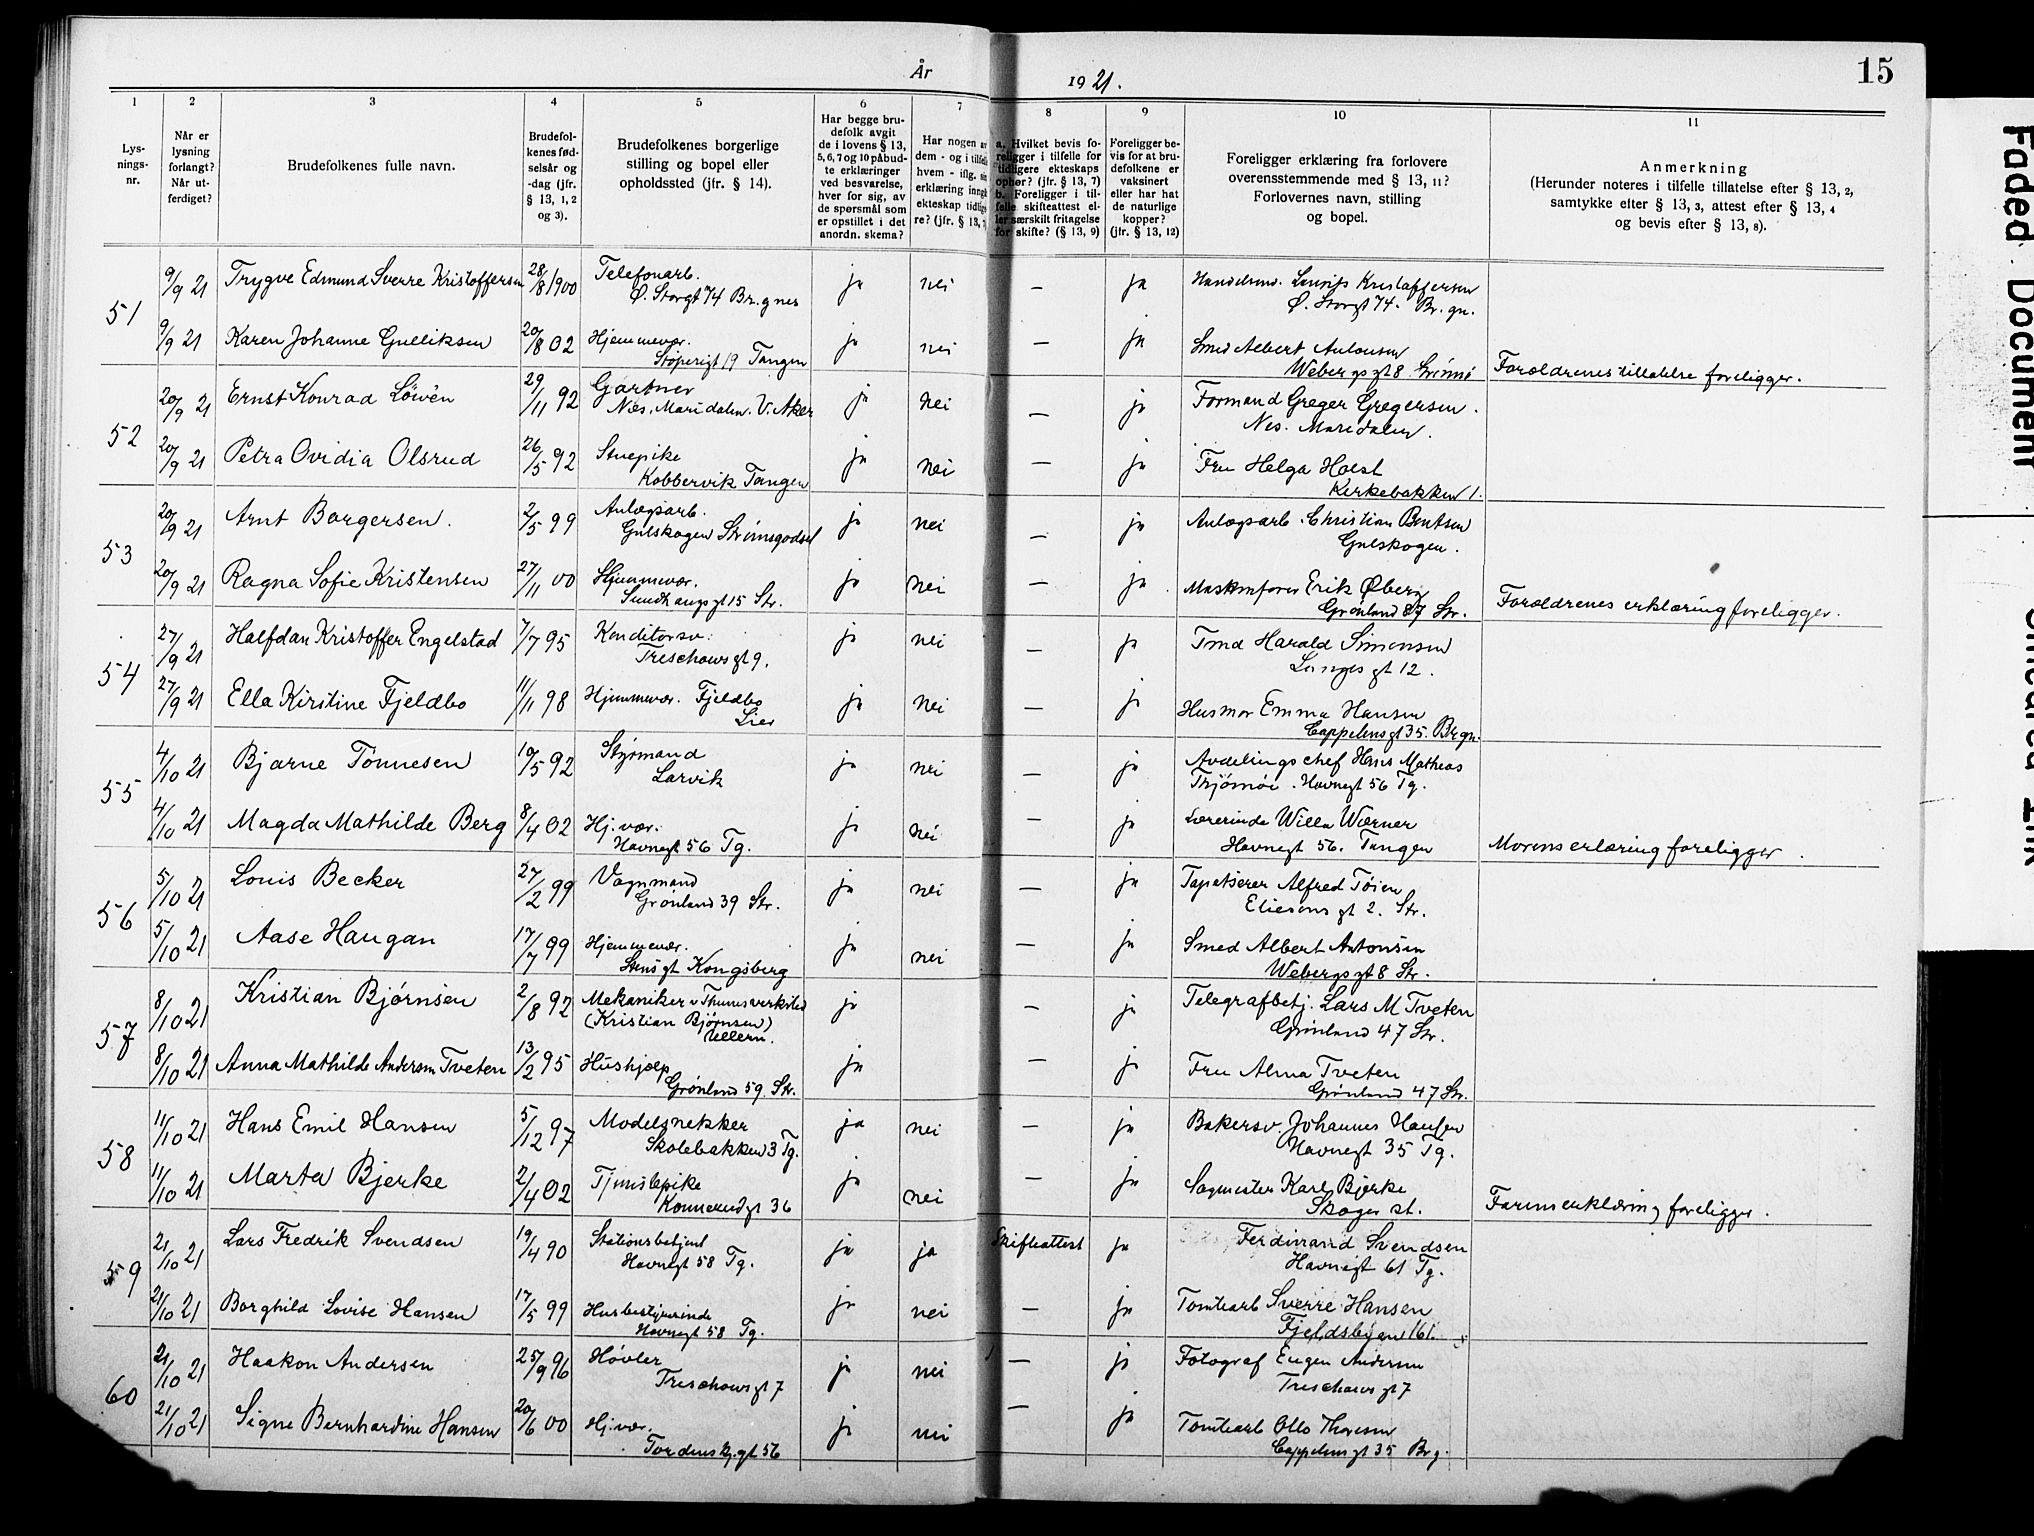 År 1921.
15
1 2 3 4 5 6 7 8 9 10 11
Lys-
nings-
nr.
Når er
lysning
forlangt?
Når ut-
ferdiget?
Brudefolkenes fulle navn.
Brudefol-
kenes fød-
selsår og
-dag (jfr.
§ 13, 1, 2
og 3).
Brudefolkenes borgerlige
stilling og bopel eller
opholdssted (jfr. § 14).
Har begge bru-
defolk avgit
de i lovens § 13,
5, 6, 7 og 10 påbud-
te erklæringer
ved besvarelse,
hver for sig, av
de spørsmål som
er opstillet i det
anordn. skema?
Har nogen av
dem - og i tilfelle
hvem - iflg. sin
erklæring inngåt
ekteskap tidlige-
re? (jfr. § 13,
a. Hvilket bevis fo-
religger i tilfelle for
tidligere ekteskaps
ophør? (jfr. § 13, 7)
b. Foreligger i til-
felle skifteattest el-
ler særskilt fritagelse
for skifte? (§ 13, 9)
Foreligger be-
vis for at bru-
defolkene er
vaksinert
eller har hat
de naturlige
kopper?
(jfr. § 13, 12)
Foreligger erklæring fra forlovere
overensstemmende med § 13, 11?
Forlovernes navn, stilling
og bopel.
Anmerkning
(Herunder noteres i tilfelle tillatelse efter § 13, 2,
samtykke efter § 13, 3, attest efter § 13, 4
og bevis efter § 13, 8).
51 9/9 21 Trygve Edmund Sverre Kristoffersen 28/8 1900 Telefonarb. ja nei — ja Handelsmd. Lauritz Kristoffersen
Ø. Storgt 74 Br.gnes Ø. Storgt 74. Br. gn.
9/9 21 Karen Johanne Gulliksen 20/8 02 Hjemmevær. ja nei — ja Smed Albert Antonsen
Støperigt 19 Tangen Webergs gt 8 Strømsø Forældrenes tillatelse foreligger.
52 20/9 21 Ernst Konrad Löwén 29/11 92 Gartner ja nei — ja Formand Greger Gregersen.
Nes. Maridalen. V. Aker Nes. Maridalen.
20/9 21 Petra Ovidia Olsrud 26/5 92 Stuepike ja nei — ja Fru Helga Holst
Kobbervik Tangen Kirkebakken 1.
53 20/9 21 Arnt Borgersen. 2/5 99 Anlægsarb. ja nei — ja Anlægsarb. Christian Bentsen
Gulskogen Strømsgodset Gulskogen.
20/9 21 Ragna Sofie Kristensen 27/11 00 Hjemmevær. ja nei — ja Maskinfører Erik Øberg
Sundhaugs gt 15 Str. Grønland 87 Str. Forældrenes erklæring foreligger.
54 27/9 21 Halfdan Kristoffer Engelstad 7/7 95 Konditorsv. ja nei — ja Tmd Harald Simonsen
Treschows gt 9. Langes gt 12.
27/9 21 Ella Kirstine Fjeldbo 11/11 98 Hjemmevær. Fjeldbo ja nei — ja Husmor Emma Hansen
Lier Cappelens gt 35. Brgn.
55 4/10 21 Bjarne Tönnesen 19/5 92 Styrmand ja nei — ja Avdelingschef Hans Mathias
Larvik Thjømøe. Havnegt 56 Tg.
4/10 21 Magda Mathilde Berg 8/4 02 Hj.vær. ja nei — ja Lærerinde Willa Wærner
Havnegt 56 Tg. Havnegt 56. Tangen Morens erlæring foreligger.
56 5/10 21 Louis Becker 27/2 99 Vognmand ja nei — ja Tapetserer Alfred Tøien
Grønland 39 Str. Eliesons gt 2. Str.
5/10 21 Aase Haugan 17/7 99 Hjemmevær. ja nei — ja Smed Albert Antonsen
Stens gt Kongsberg Webergs gt 8 Str.
57 8/10 21 Kristian Bjørnsen 2/8 92 Mekaniker v Thunes verksted ja — ja Telegrafbetj. Lars M Tveten
(Kristian Bjørnsen) Grønland 47 Str.
Ullern.
8/10 21 Anna Mathilde Andersen Tveten 13/2 95 Hushjælp ja — ja Fru Alma Tveten
Grønland 59 Str. Grønland 47 Str.
58 11/10 21 Hans Emil Hansen 5/12 97 Modelsnekker ja nei — ja Bakersv. Johannes Hansen
Skolebakken 3 Tg. Havnegt 35 Tg.
11/10 21 Marta Bjerke 2/4 02 Tjenestepike ja nei — ja Sagmester Karl Bjerke
Konnerudgt 36 Skoger st. Farens erklæring foreligger.
59 21/10 21 Lars Fredrik Svendsen 19/4 90 Stationsbetjent ja ja Skifteattest ja Ferdinand Svendsen
Havnegt 58 Tg. Havnegt 61 Tg.
21/10 21 Borghild Lovise Hansen 17/5 99 Husbestyrerinde ja nei — ja Tomtearb Sverre Hansen
Havnegt 58 Tg. Fjeldsbyen 161.
60 21/10 21 Haakon Andersen 25/9 96 Høvler ja nei — ja Fotograf Eugen Andersen
Treschows gt 7 Treschows gt 7
21/10 21 Signe Bernhardine Hansen 20/6 00 Hj.vær. ja nei — ja Tomtearb Otto Thoresen
Tordenskj. gt 56 Cappelens gt 35 Brg.
Faded Document